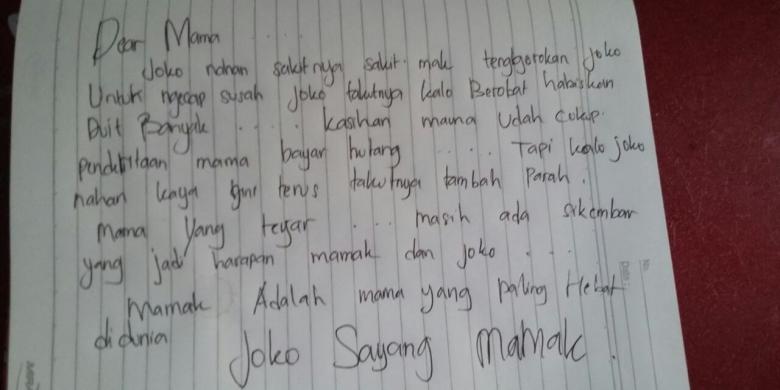 Dear Mama ....
Joko nahan sakitnya sakit mak tenggorokan Joko
Untuk ngecap susah Joko takutnya kalo Berobat habiskan
Duit Banyak .... kasihan mama Udah cukup
penderitaan mama bayar hutang .... Tapi kalo joko
nahan kaya gini terus takutnya tambah Parah.
mama yang tegar .... masih ada sikembar
yang jadi harapan mamak dan joko ....
Mamak Adalah mama yang paling Hebat
di dunia
Joko Sayang Mamak.
No.
Date